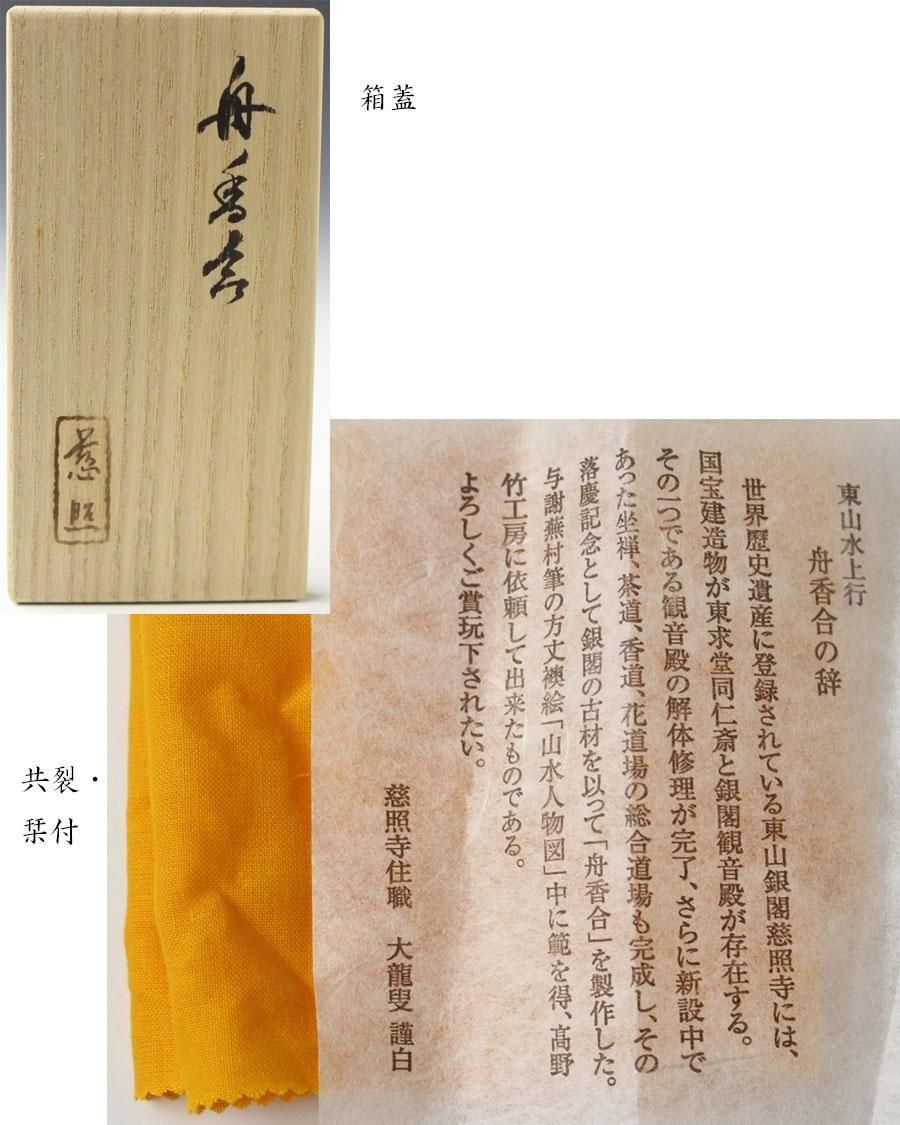 舟香合
慈照
箱蓋
東山水上行
舟香合の辞
世界歴史遺産に登録されている東山銀閣慈照寺には、
国宝建造物が東求堂同仁斎と銀閣観音殿が存在する。
その一つである観音殿の解体修理が完了、さらに新設中で
あった坐禅、茶道、香道、花道場の総合道場も完成し、その
落慶記念として銀閣の古材を以って「舟香合」を製作した。
与謝蕪村筆の方丈襖絵「山水人物図」中に範を得、髙野
竹工房に依頼して出来たものである。
よろしくご賞玩下されたい。
慈照寺住職　大龍叟 謹白
共裂・
栞付